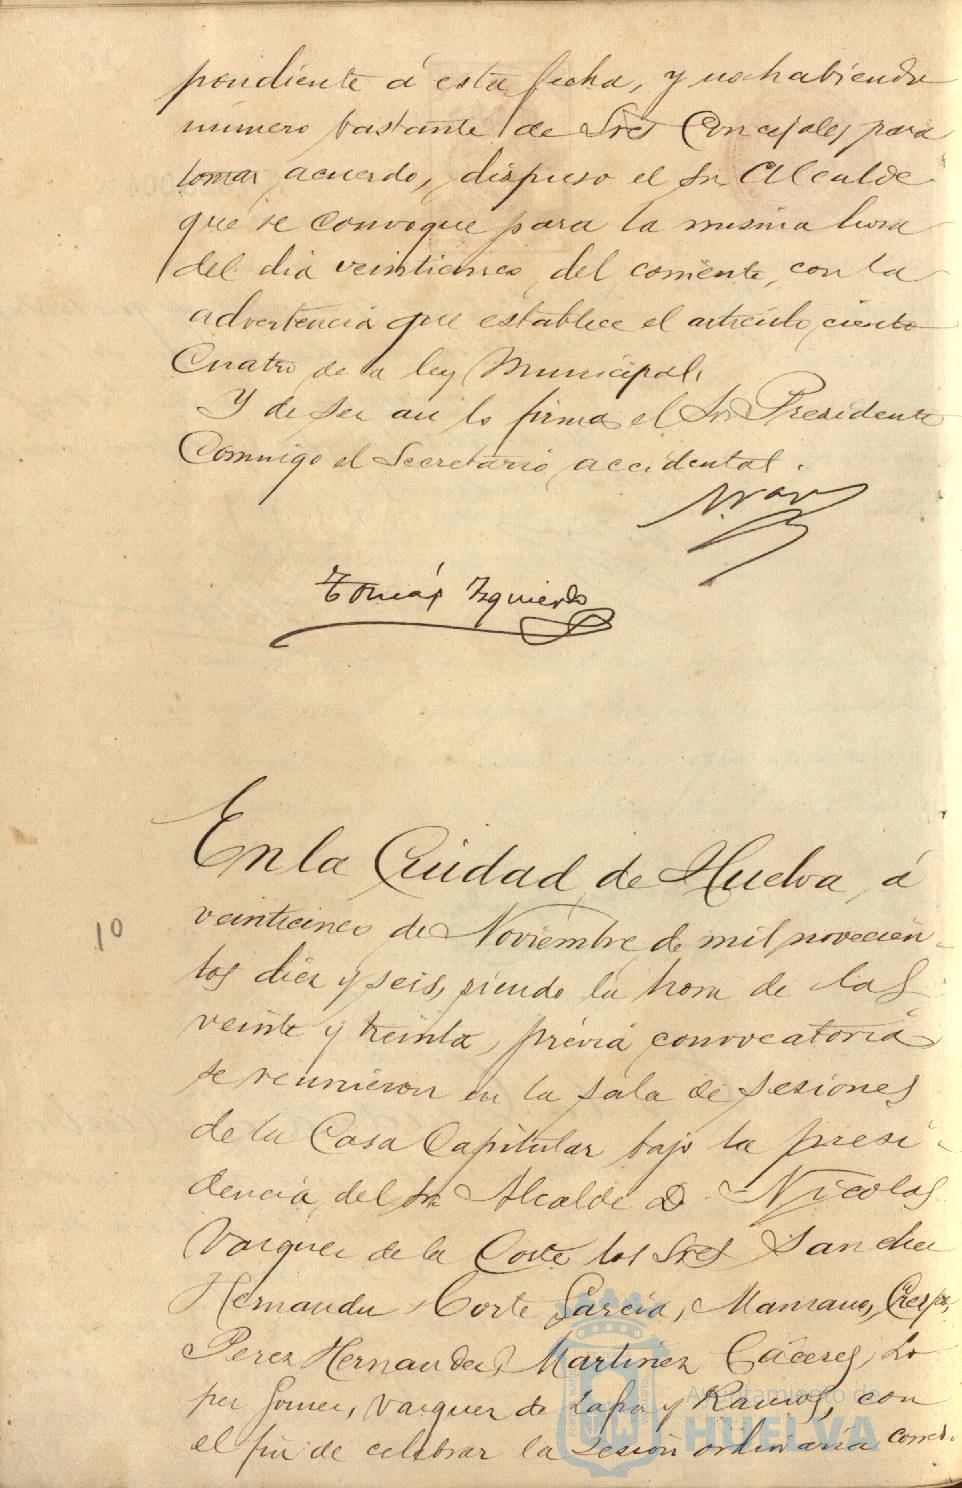 pondiente á esta fecha, y no habiendo
número bastante de Sres Concejales para
tomar acuerdo, dispuso el Sr Alcalde
que se convoque para la misma hora
del dia veinticinco del corriente, con la
advertencia que establece el artículo ciento
Cuatro de la ley Municipal.
Y de ser asi lo firma el Sor Presidente
Conmigo el Secretario accidental.
Tomás Izquierdo
En la Ciudad de Huelva á
10
veinticinco de Noviembre de mil novecien-
tos diez y seis, siendo la hora de las
veinte y treinta, prévia convocatoria
se reunieron en la sala de sesiones
de la Casa Capitular bajo la presi-
dencia del Sr Alcalde D. Nicolas
Vazquez de la Corte los Sres Sanchez
Hernandez Corte Garcia, Manzano, Crespo,
Perez Hernandez, Martinez Cáceres, Lo
pez Gomez, Vazquez de Zafra y Ramos, con
el fin de celebrar la sesión ordinaria corres.
Ayuntamiento de
HUELVA